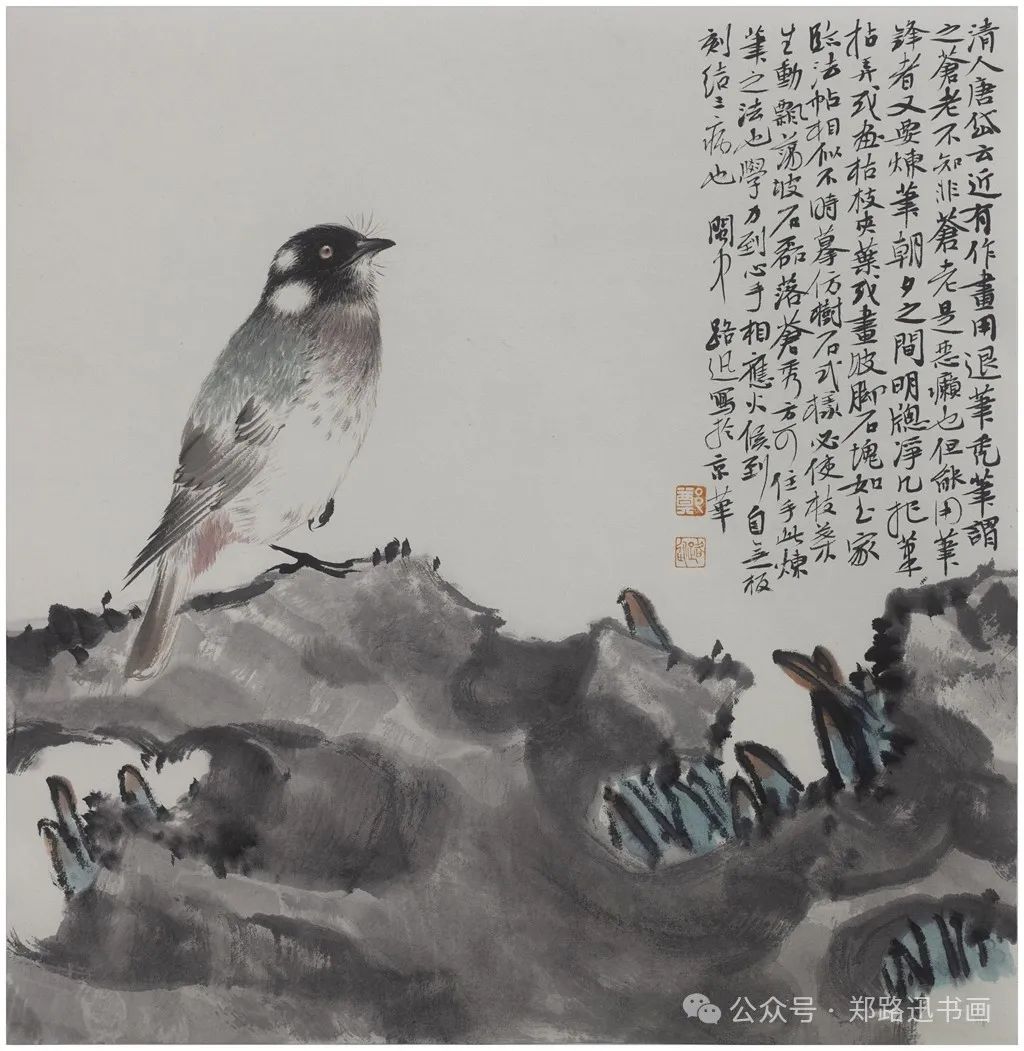 清人唐岱云近有作畫用退筆禿筆謂
之蒼老不知非蒼老是惡癩也但能用筆
鋒者又要煉筆朝夕之間明窗淨几把筆
拈弄或畫枯枝夾葉或畫坡腳石塊如書家
臨法帖相似不時摹仿樹石式樣必使枝葉
生動飄蕩坡石磊落蒼秀方可住手此煉
筆之法也學力到心手相應火候到自無板
刻結三病也 閩中 路迅寫於京華
公众号·郑路迅书画